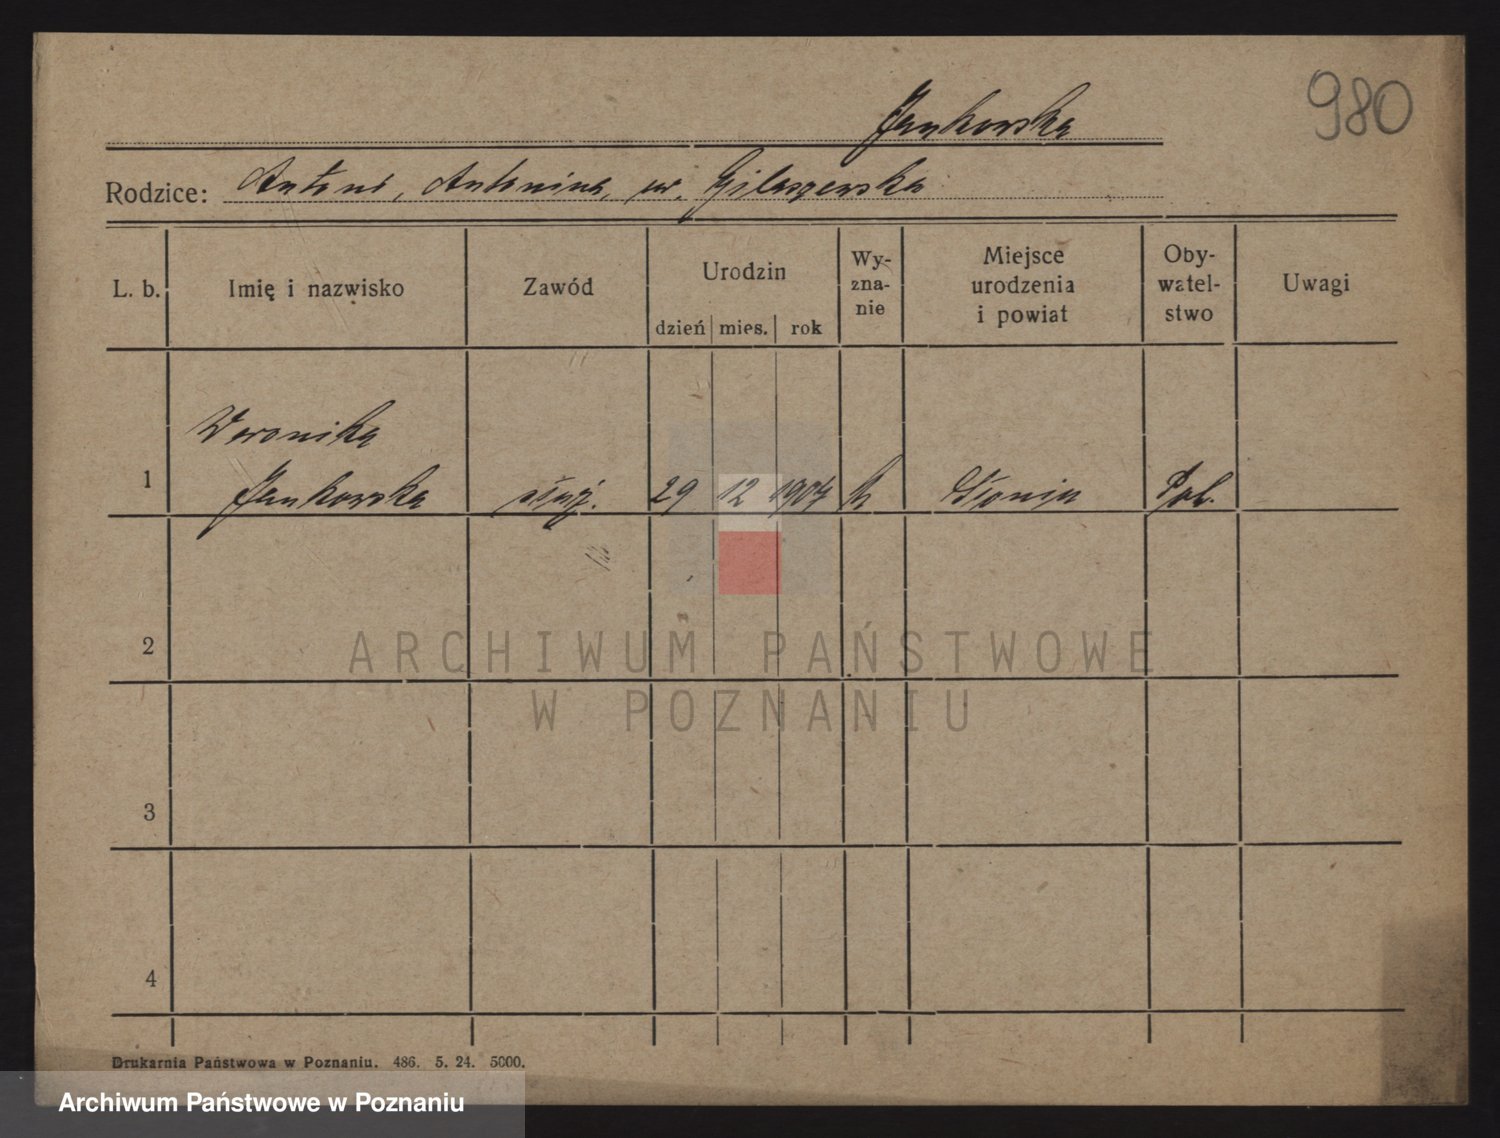 980
Jankowska
Rodzice: Antoni, Antonina, ur.
L. b. Imię i nazwisko Zawód Urodzin dzień mies. rok Wy-zna-nie Miejsce urodzenia i powiat Oby-watel-stwo Uwagi
Weronika
1 Jankowska służ. 29 12 1904 k Słonin Pol.
2
3
4
Drukarnia Państwowa w Poznaniu. 486. 5. 24. 5000.
ARCHIWUM PAŃSTWOWE
W POZNANIU
Archiwum Państwowe w Poznaniu